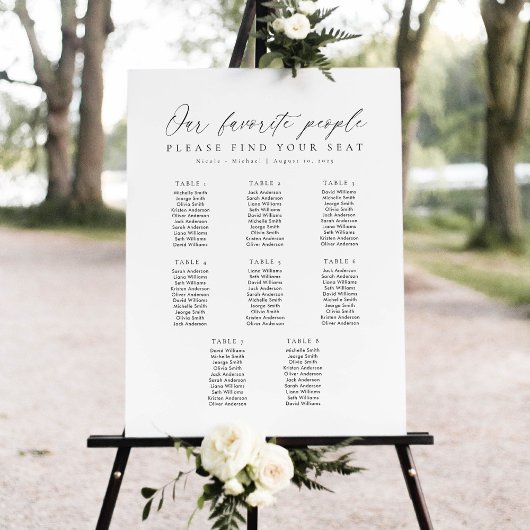 Our favorite people
PLEASE FIND YOUR SEAT
Nicole - Michael | August 10, 2025
TABLE 1
Michelle Smith
Jeorge Smith
Olivia Smith
Kristen Anderson
Oliver Anderson
Jack Anderson
Sarah Anderson
Liana Williams
Seth Williams
David Williams
TABLE 2
Jack Anderson
Sarah Anderson
Liana Williams
Seth Williams
David Williams
Michelle Smith
Jeorge Smith
Olivia Smith
Kristen Anderson
Oliver Anderson
TABLE 3
David Williams
Michelle Smith
Jeorge Smith
Olivia Smith
Kristen Anderson
Oliver Anderson
Jack Anderson
Sarah Anderson
Liana Williams
Seth Williams
TABLE 4
Sarah Anderson
Liana Williams
Seth Williams
David Williams
Michelle Smith
Jeorge Smith
Olivia Smith
Kristen Anderson
Oliver Anderson
Jack Anderson
TABLE 5
Liana Williams
Seth Williams
David Williams
Michelle Smith
Jeorge Smith
Olivia Smith
Kristen Anderson
Oliver Anderson
Jack Anderson
Sarah Anderson
TABLE 6
Kristen Anderson
Oliver Anderson
Jack Anderson
Sarah Anderson
Liana Williams
Seth Williams
David Williams
Michelle Smith
Jeorge Smith
Olivia Smith
TABLE 7
David Williams
Michelle Smith
Jeorge Smith
Olivia Smith
Kristen Anderson
Jack Anderson
Sarah Anderson
Liana Williams
Seth Williams
Kristen Anderson
Oliver Anderson
TABLE 8
Michelle Smith
Jeorge Smith
Olivia Smith
Kristen Anderson
Oliver Anderson
Jack Anderson
Sarah Anderson
Liana Williams
Seth Williams
David Williams